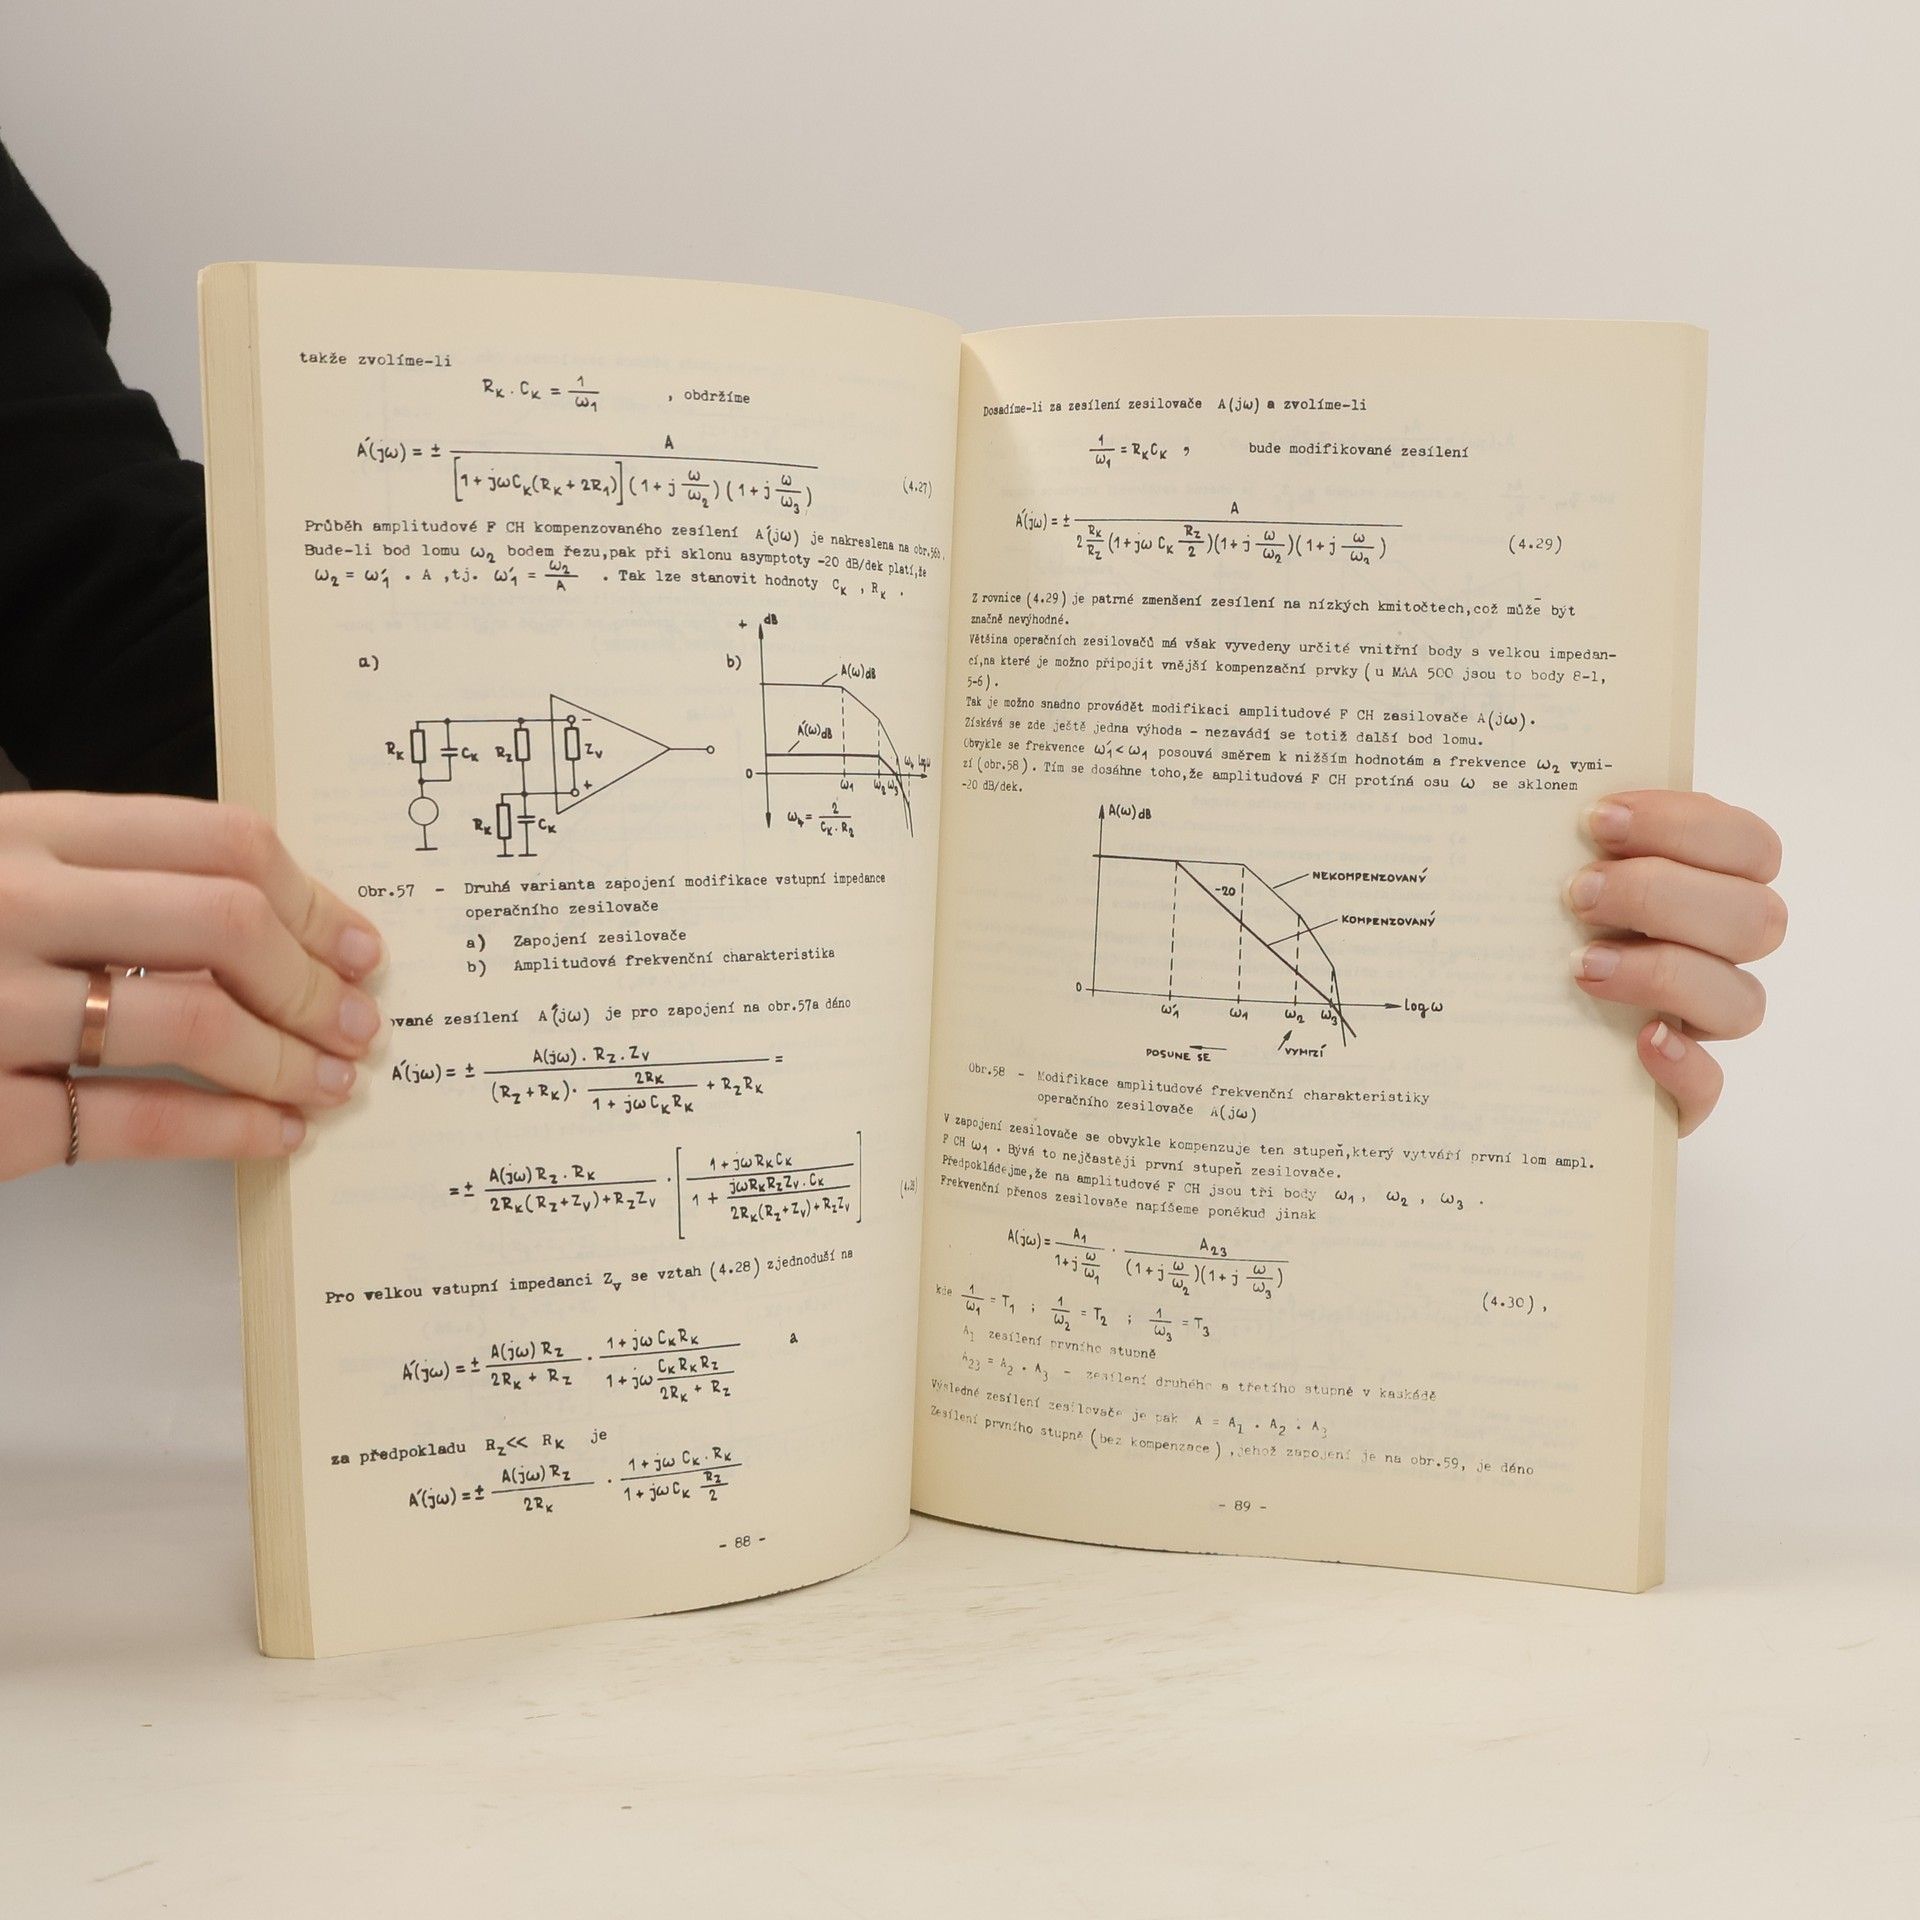 takže zvolíme-li
R_K . C_K = 1/ω_1 , obdržíme
A´(jω) = ± A / [1 + jωC_K(R_K + 2R_1)](1 + j ω/ω_2)(1 + j ω/ω_3) (4.27)
Průběh amplitudové F CH kompenzovaného zesílení A´(jω) je nakreslena na obr.56b.
Bude-li bod lomu ω_2 bodem řezu,pak při sklonu asymptoty -20 dB/dek platí,že
ω_2 = ω´_1 . A ,tj. ω´_1 = ω_2/A . Tak lze stanovit hodnoty C_K , R_K .
a)
R_K
C_K
R_Z
Z_V
-
+
R_K
C_K
b)
+
dB
A(ω)dB
A´(ω)dB
0
ω_1 ω_2 ω_3 ω_4 log ω
ω_4 = 2 / C_K . R_2
Obr.57 - Druhá varianta zapojení modifikace vstupní impedance
operačního zesilovače
a) Zapojení zesilovače
b) Amplitudová frekvenční charakteristika
ované zesílení A´(jω) je pro zapojení na obr.57a dáno
A´(jω) = ± A(jω) . R_Z . Z_V / (R_Z + R_K) . 2R_K / 1 + jωC_K R_K + R_Z R_K =
= ± A(jω) R_Z . R_K / 2R_K(R_Z + Z_V) + R_Z Z_V . [1 + jωR_K C_K / 1 + jωR_K R_Z Z_V . C_K / 2R_K(R_Z + Z_V) + R_Z Z_V] (4.28)
Pro velkou vstupní impedanci Z_v se vztah (4.28) zjednoduší na
A´(jω) = ± A(jω) R_Z / 2R_K + R_Z . 1 + jω C_K R_K / 1 + jω C_K R_K R_Z / 2R_K + R_Z a
za předpokladu R_Z << R_K je
A´(jω) = ± A(jω) R_Z / 2R_K . 1 + jω C_K . R_K / 1 + jω C_K R_Z/2
- 88 -
Dosadíme-li za zesílení zesilovače A(jω) a zvolíme-li
1/ω_1 = R_K C_K , bude modifikované zesílení
A´(jω) = ± A / 2 R_K/R_Z (1 + jω C_K R_Z/2)(1 + j ω/ω_2)(1 + j ω/ω_2) (4.29)
Z rovnice (4.29) je patrné zmenšení zesílení na nízkých kmitočtech,což může být
značně nevýhodné.
Většina operačních zesilovačů má však vyvedeny určité vnitřní body s velkou impedan-
cí,na které je možno připojit vnější kompenzační prvky (u MAA 500 jsou to body 8-1,
5-6).
Tak je možno snadno provádět modifikaci amplitudové F CH zasilovače A(jω).
Získává se zde ještě jedna výhoda - nezavádí se totiž další bod lomu.
Obvykle se frekvence ω´_1 < ω_1 posouvá směrem k nižším hodnotám a frekvence ω_2 vymi-
zí (obr.58). Tím se dosáhne toho,že amplitudová F CH protíná osu ω se sklonem
-20 dB/dek.
A(ω)dB
NEKOMPENZOVANÝ
-20
KOMPENZOVANÝ
0
ω´_1 ω_1 ω_2 ω_3 log ω
POSUNE SE
VYMIZÍ
Obr.58 - Modifikace amplitudové frekvenční charakteristiky
operačního zesilovače A(jω)
V zapojení zesilovače se obvykle kompenzuje ten stupeň,který vytváří první lom ampl.
F CH ω_1 . Bývá to nejčastěji první stupeň zesilovače.
Předpokládejme,že na amplitudové F CH jsou tři body ω_1 , ω_2 , ω_3 .
Frekvenční přenos zesilovače napíšeme poněkud jinak
A(jω) = A_1 / 1 + j ω/ω_1 . A_23 / (1 + j ω/ω_2)(1 + j ω/ω_3) (4.30) ,
kde 1/ω_1 = T_1 ; 1/ω_2 = T_2 ; 1/ω_3 = T_3
A_1 zesílení prvního stupně
A_23 = A_2 . A_3 - zesílení druhého a třetího stupně v kaskádě
Výsledné zesílení zesilovače je pak A = A_1 . A_2 . A_3
Zesílení prvního stupně (bez kompenzace),jehož zapojení je na obr.59, je dáno
- 89 -